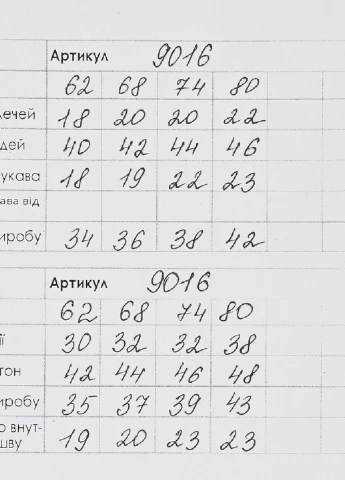 Артикул 9016
62 68 74 80
лечей 18 20 20 22
дей 40 42 44 46
укава 18 19 22 23
ава від
иробу 34 36 38 42
Артикул 9016
62 68 74 80
ії 30 32 32 38
тон 42 44 46 48
иробу 35 37 39 43
о внут-
шву 19 20 23 23